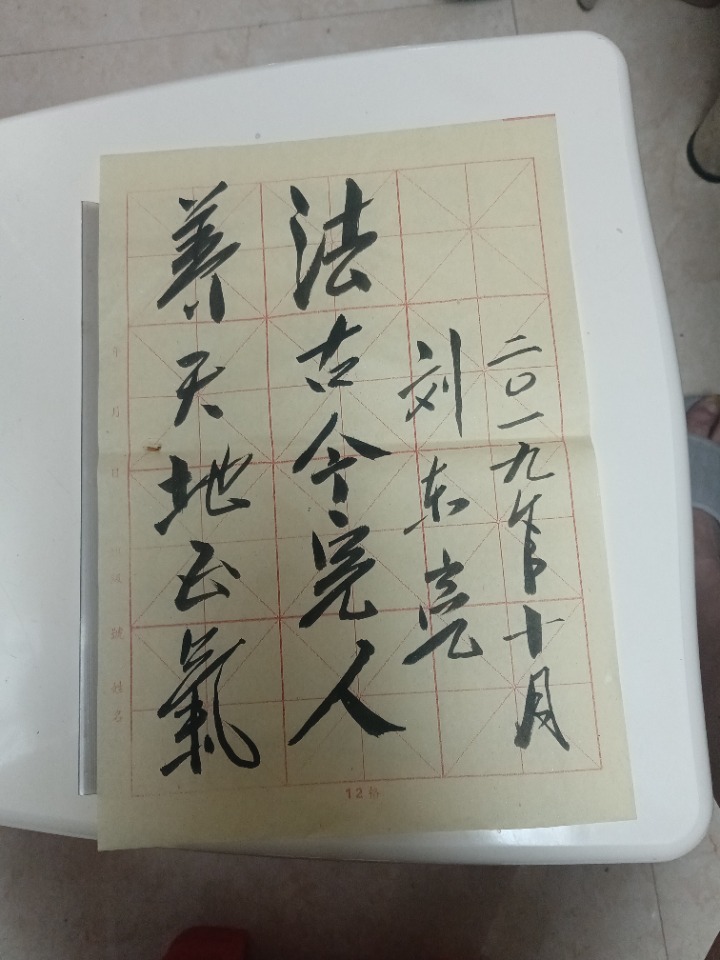 养天地正氣
法古今完人
刘东亮
二〇一九年十月
12格
年 月 日
號 姓名